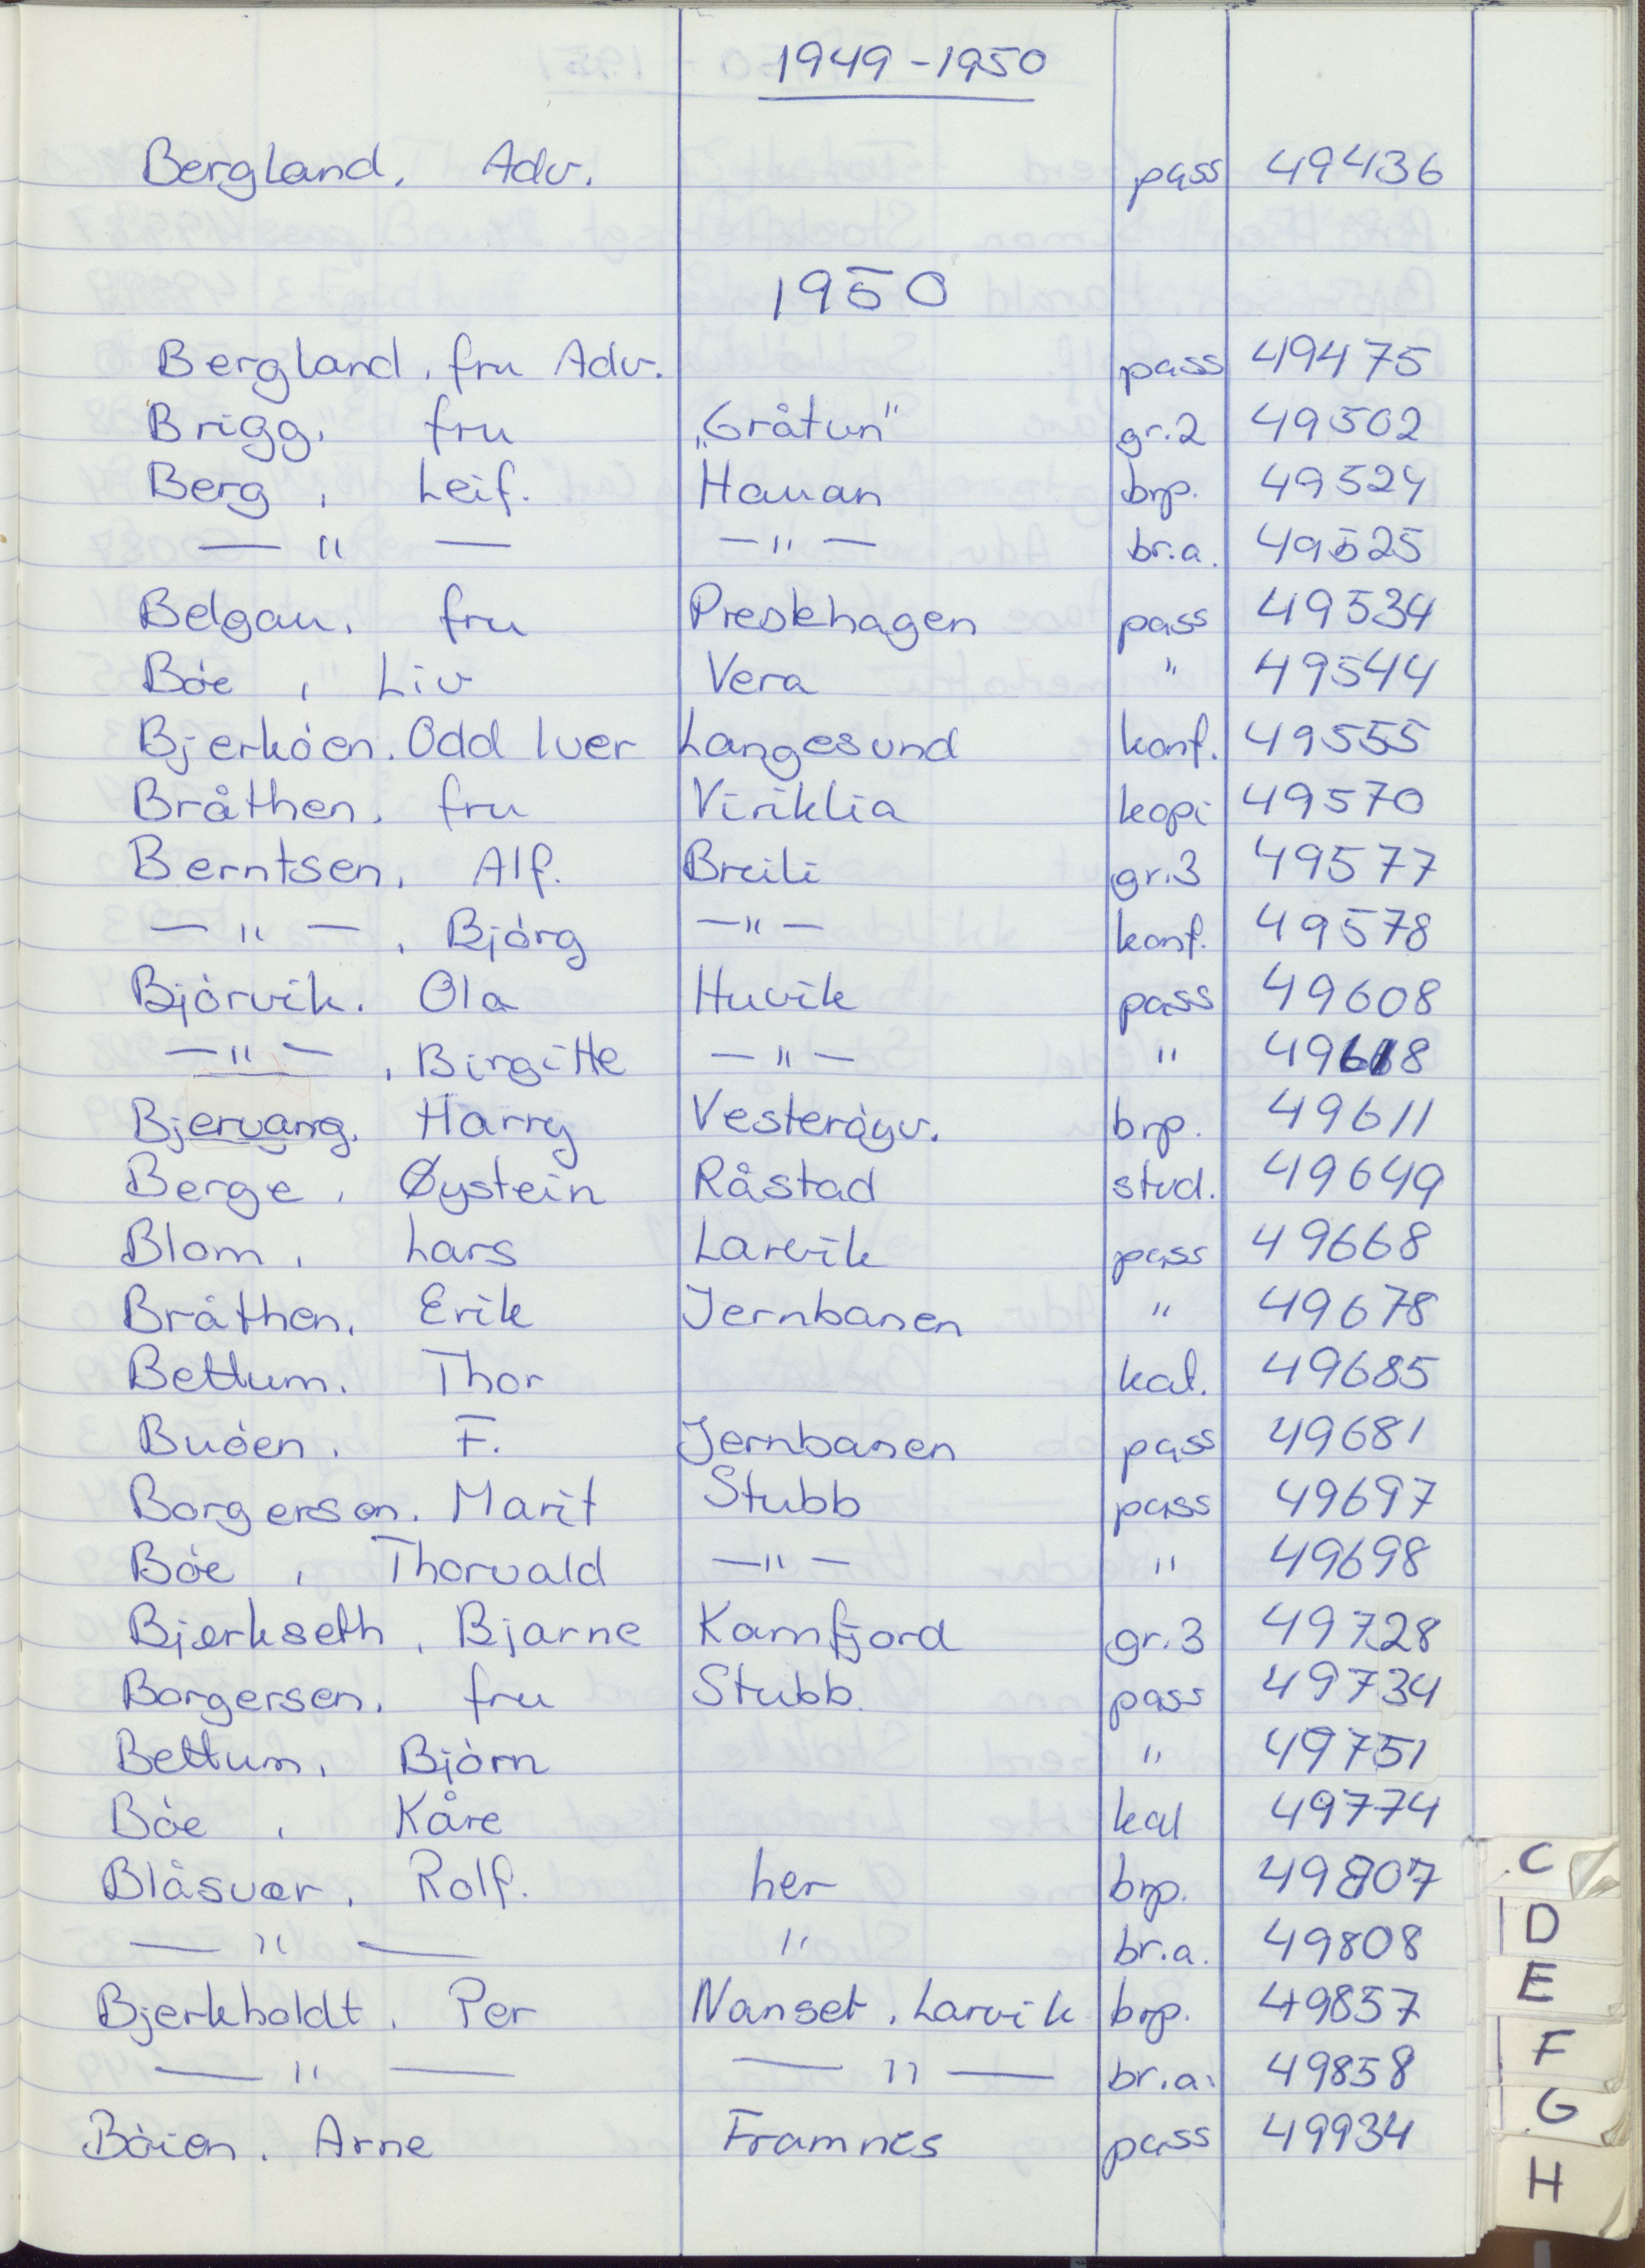 1949-1950
Bergland, Adv. pass 49436
1950
Bergland, fru Adv. pass 49475
Brigg, fru „Gråtun" gr.2 49502
Berg, Leif. Hauan brp. 49524
— " — — " — br.a. 49525
Belgau, fru Preskhagen pass 49534
Bóe, Liv Vera " 49544
Bjerkóen. Odd Iver Langesund konf. 49555
Bråthen, fru Viriklia kopi 49570
Berntsen, Alf. Breili gr.3 49577
— " —, Bjórg — " — konf. 49578
Bjórvik. Ola Huvik pass 49608
— " —, Birgitte — " — " 49618
Bjervang. Harry Vesteróyv. brp. 49611
Berge, Øystein Råstad stud. 49649
Blom, Lars Larvik pass 49668
Bråthen, Erik Jernbanen " 49678
Bettum. Thor kal. 49685
Buóen. F. Jernbanen pass 49681
Borgersen. Marit Stubb pass 49697
Bóe, Thorvald — " — " 49698
Bjerkseth, Bjarne Kamfjord gr.3 49728
Borgersen, fru Stubb. pass 49734
Bettum, Bjórn " 49751
Bóe, Kåre kal 49774
Blåsvær, Rolf. her brp. 49807
— " — " br.a. 49808
Bjerkholdt. Per Nanset, Larvik brp. 49857
— " — — " — br.a. 49858
Bóien. Arne Framnes pass 49934
C
D
E
F
G
H